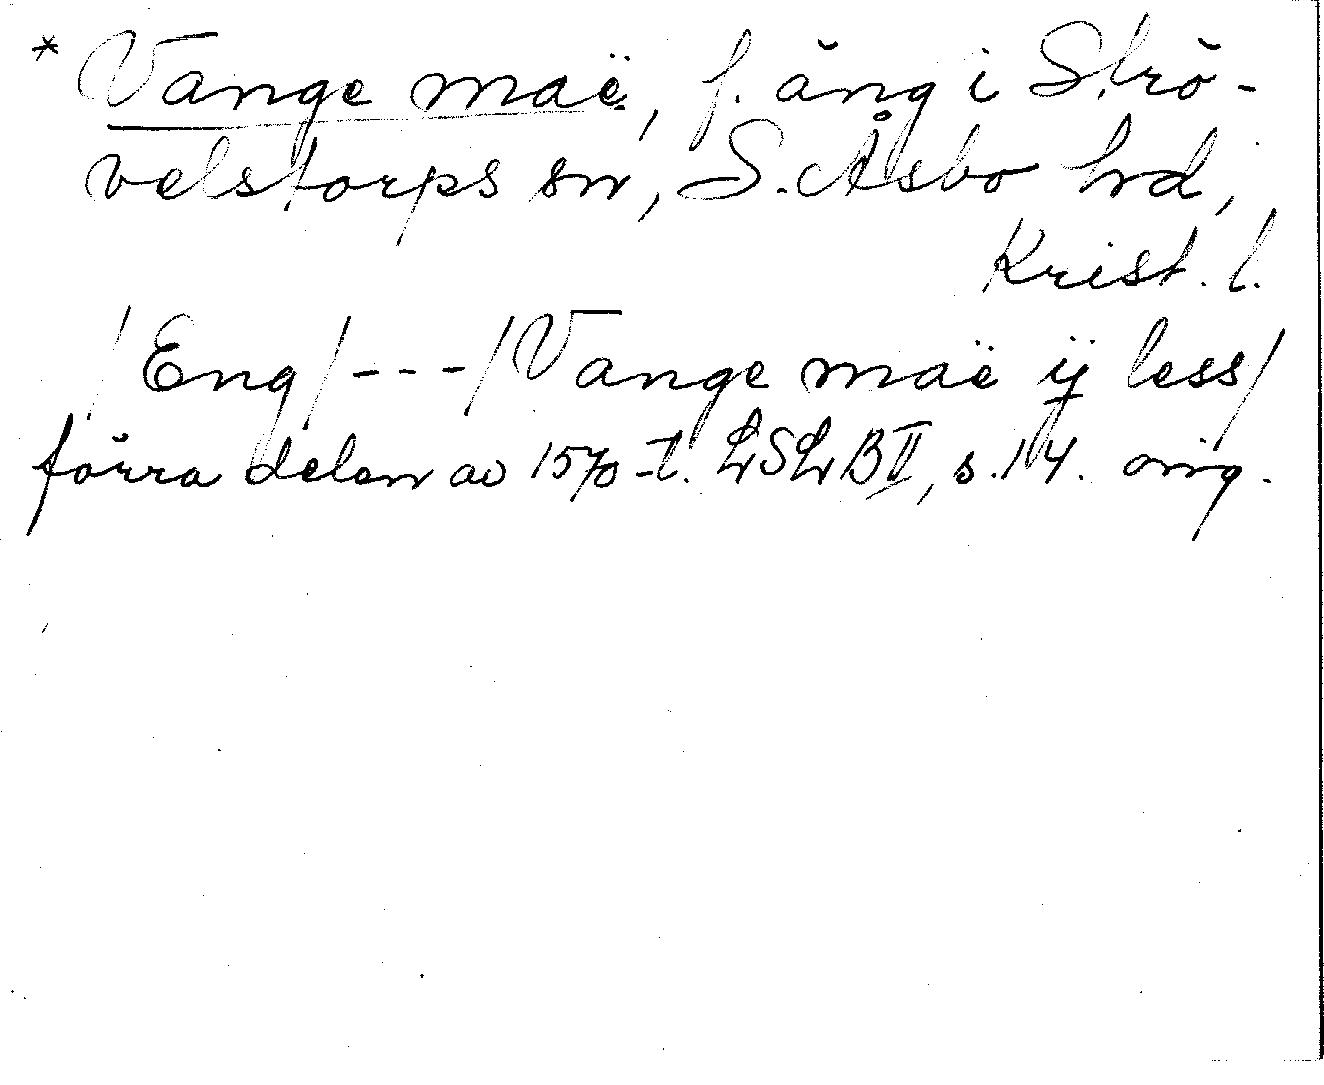 * Vange maë, f. äng i Strö-
velstorps sn, S. Åsbo hd,
Krist. l.
/Eng/---/Vange maë ij less/
förra delen av 1570-t. LSLB II, s. 14. orig.